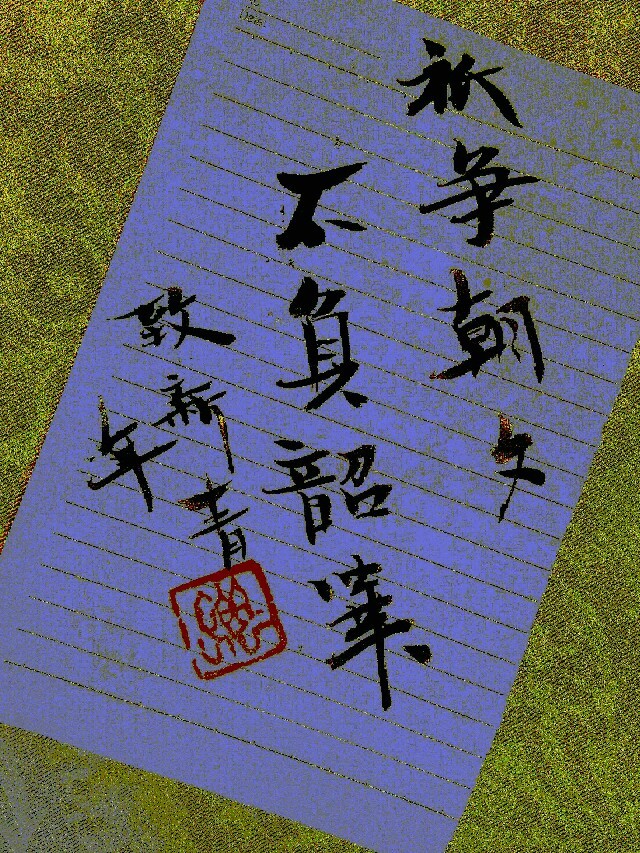 祇争朝夕
不負韶華
致新青
年